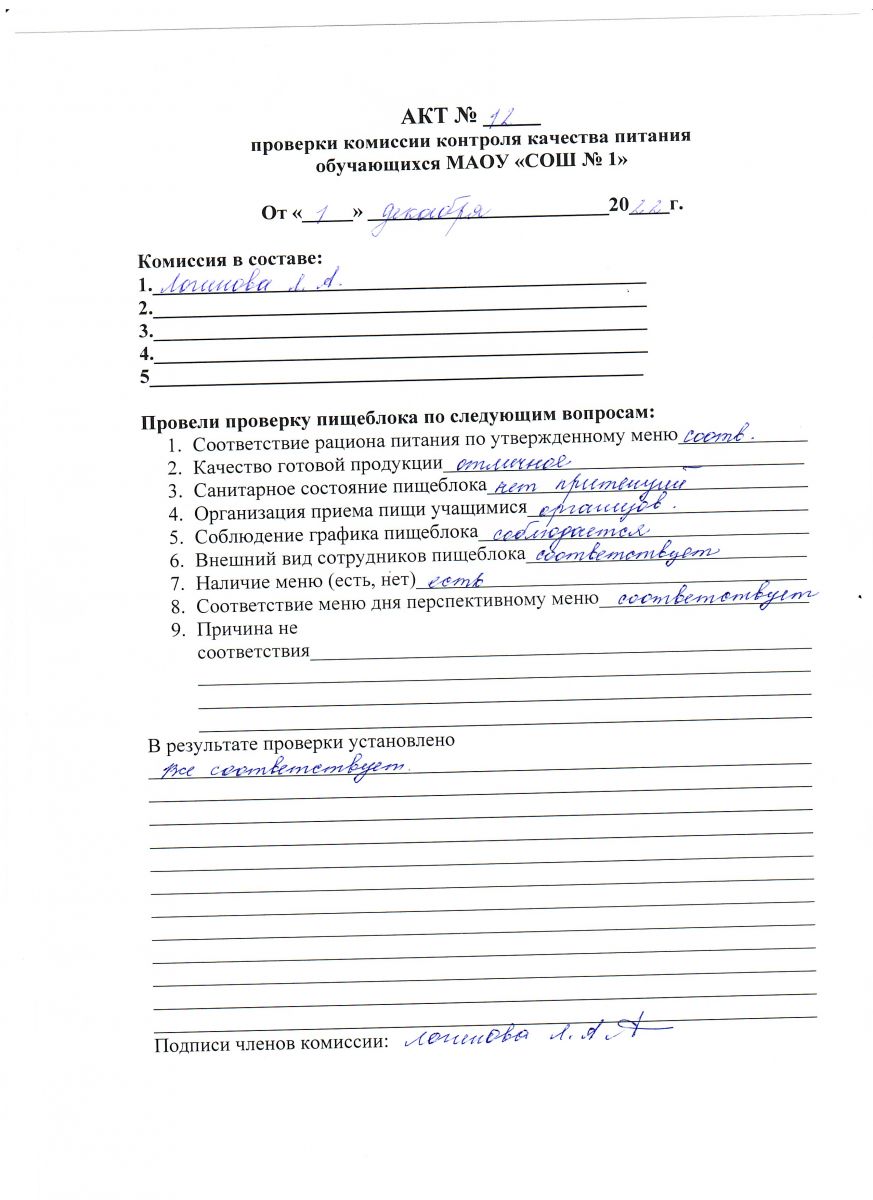 АКТ № 12
проверки комиссии контроля качества питания
обучающихся МАОУ «СОШ № 1»
От « 1 » декабря 2022 г.
Комиссия в составе:
1. Логинова Л. А.
2.
3.
4.
5
Провели проверку пищеблока по следующим вопросам:
1. Соответствие рациона питания по утвержденному меню соотв.
2. Качество готовой продукции отличное
3. Санитарное состояние пищеблока нет притензий
4. Организация приема пищи учащимися организов.
5. Соблюдение графика пищеблока соблюдается
6. Внешний вид сотрудников пищеблока соответствует
7. Наличие меню (есть, нет) есть
8. Соответствие меню дня перспективному меню соответствует
9. Причина не
соответствия
В результате проверки установлено
все соответствует.
Подписи членов комиссии: Логинова Л. А